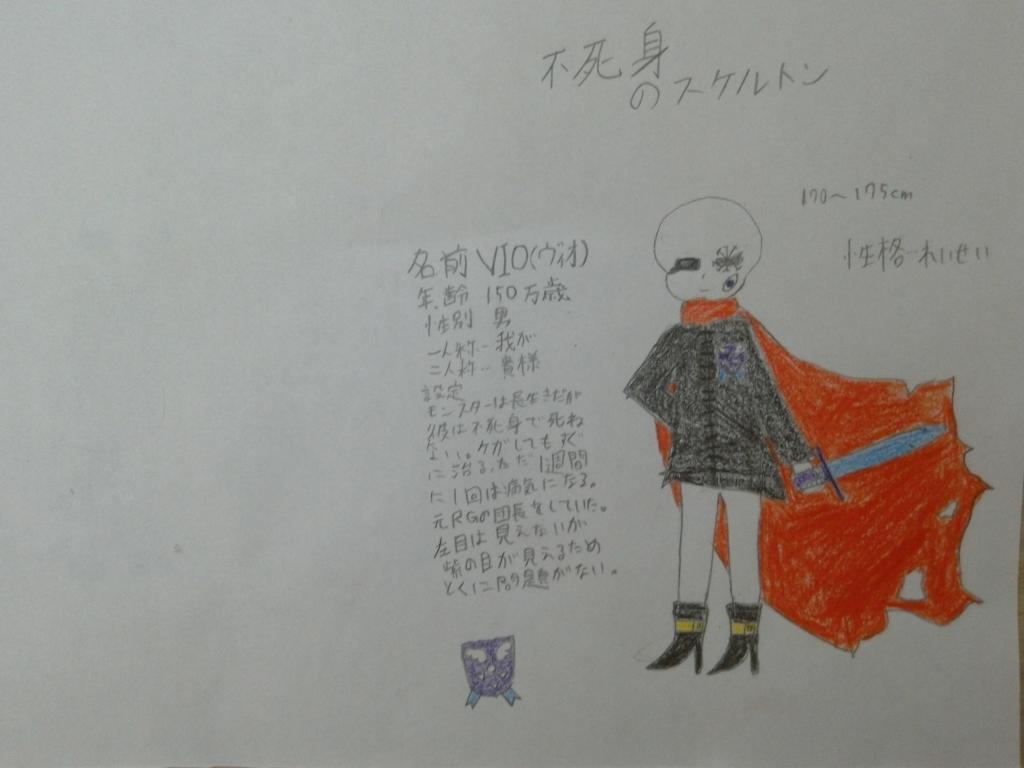 不死身
のスケルトン
170〜175cm
性格…れいせい
名前 VIO(ヴィオ)
年齢 150万歳
性別 男
一人称…我が
二人称…貴様
設定
モンスターは長生きだが
彼は不死身で死ね
ない。ケガしてもすぐ
に治る。ただ1週間
に1回は病気になる。
元RGの団長をしていた。
左目は見えないが
紫の目が見えるため
とくに問題がない。